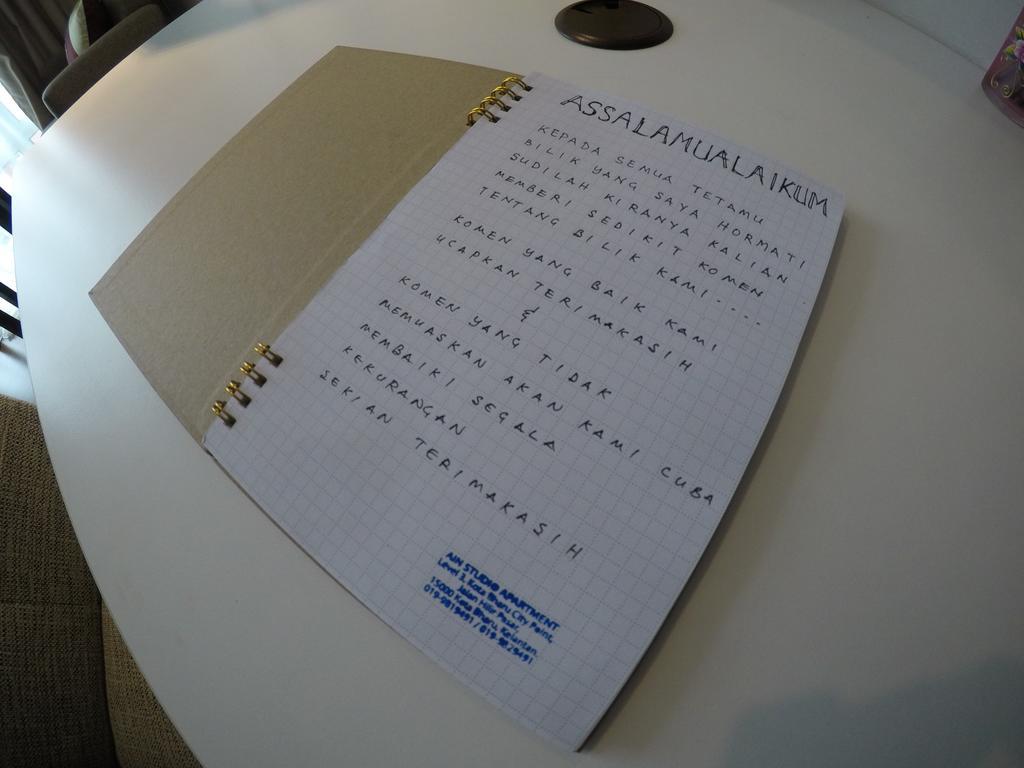 ASSALAMUALAIKUM
KEPADA SEMUA TETAMU
BILIK YANG SAYA HORMATI
SUDILAH KIRANYA KALIAN
MEMBERI SEDIKIT KOMEN
TENTANG BILIK KAMI ---
KOMEN YANG BAIK KAMI
UCAPKAN TERIMAKASIH
&
KOMEN YANG TIDAK
MEMUASKAN AKAN KAMI CUBA
MEMBAIKI SEGALA
KEKURANGAN
SEKIAN TERIMAKASIH
AIN STUDIO APARTMENT
Level 3, Kota Bharu City Point,
Jalan Hilir Pasar
15000 Kota Bharu, Kelantan.
019-9819491 / 019-9829491